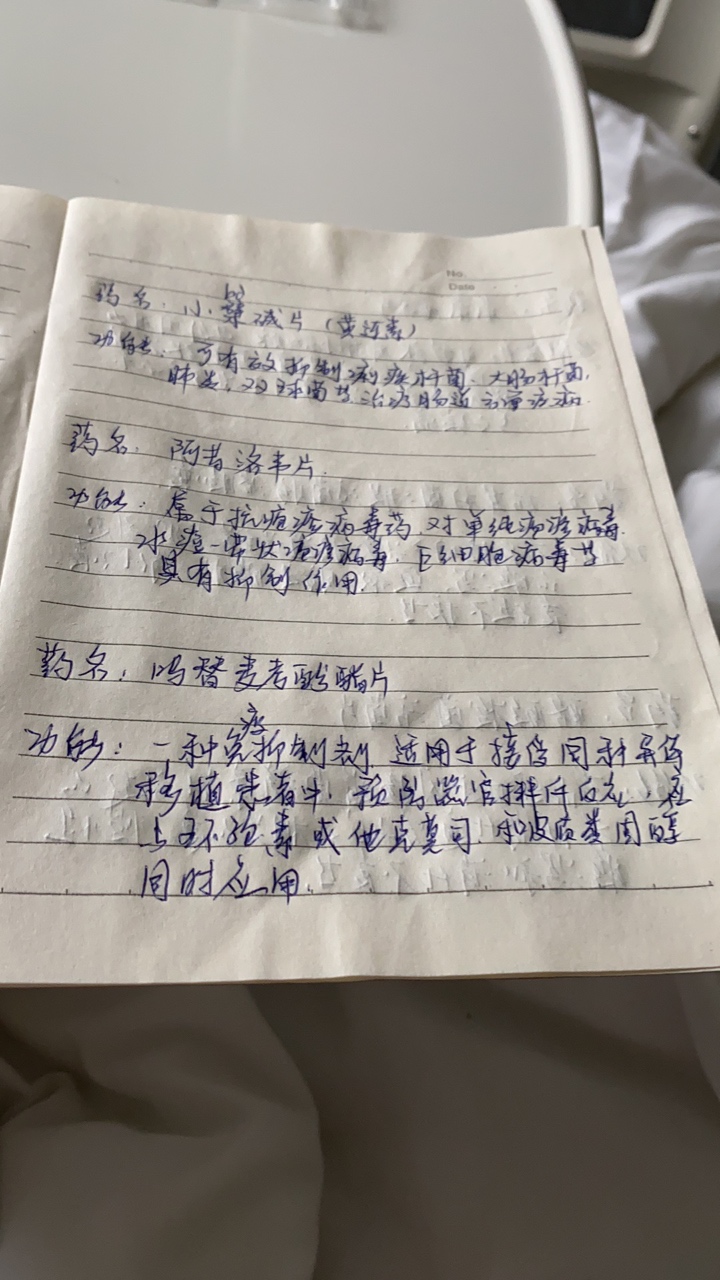 No.
Date
bò
药名：小檗碱片（黄连素）
功能：可有效抑制痢疾杆菌、大肠杆菌，
肺炎，双球菌等，治疗肠道感染疾病
药名：阿昔洛韦片
功能：属于抗疱疹病毒药，对单纯疱疹病毒
水痘-带状疱疹病毒、巨细胞病毒等
具有抑制作用
药名：吗替麦考酚酯片
疫
功能：一种免抑制剂 适用于接受同种异体
移植患者中，预防器官排斥反应，应
与环孢素或他克莫司，和皮质类固醇
同时应用。